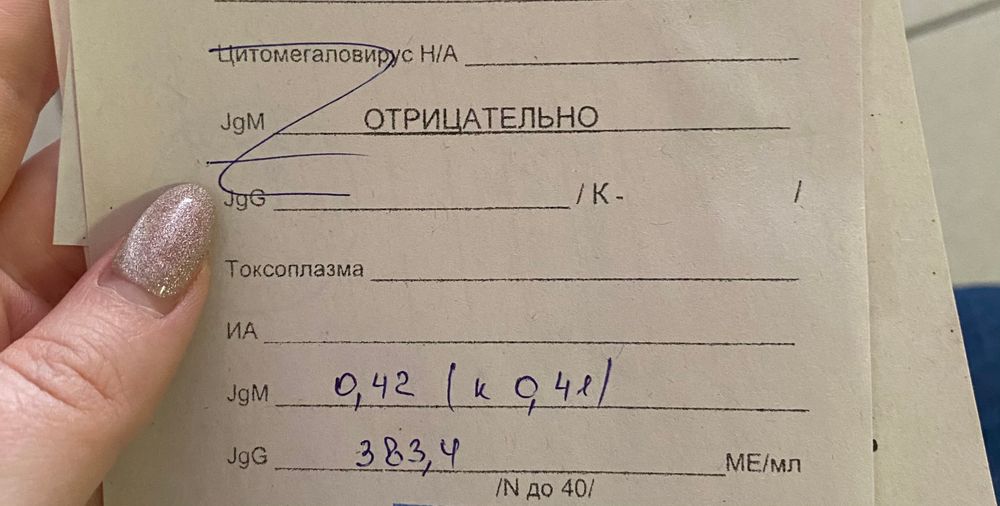 Цитомегаловирус Н/А
JgM ОТРИЦАТЕЛЬНО
JgG /К- /
Токсоплазма
ИА
JgM 0,42 (к 0,41)
JgG 383,4 МЕ/мл
/N до 40/